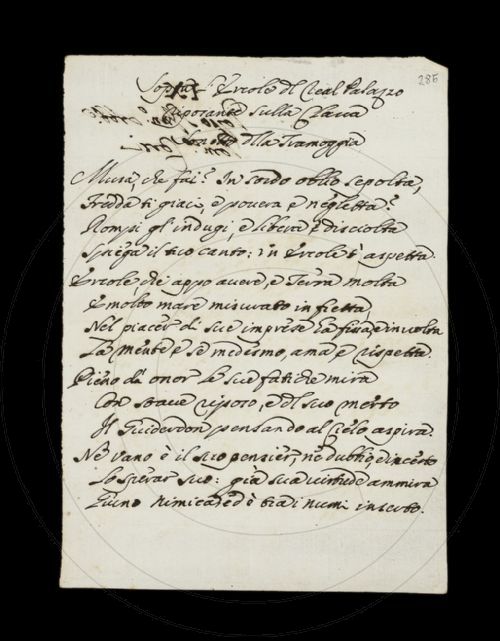 286
Sopra l'Ercole dl Real Palazzo
Riposante sulla Clava
Sonetto dlla Tramoggia
Musa, che fai? In sordo oblio sepolta,
Fredda ti giaci, e povera e negletta?
Rompi gl'indugi, e libera e disciolta
Spiega il tuo canto: un Ercole t'aspetta.
Ercole, che appo avere, e Terra molta
E molto mare misurato in fretta,
Nel piacer di sue imprese ha fisa, e involta
La mente e se medesmo, ama e rispetta.
Pieno d'onor le sue fatiche mira
Con soave riposo, e dl suo merto
Il Guiderdon pensando al Cielo aspira.
Ne vano è il suo pensier, ne dubbio, e incerto
Lo sperar suo: già sua virtude ammira
Giuno nimica, ed è tra i numi inserto.